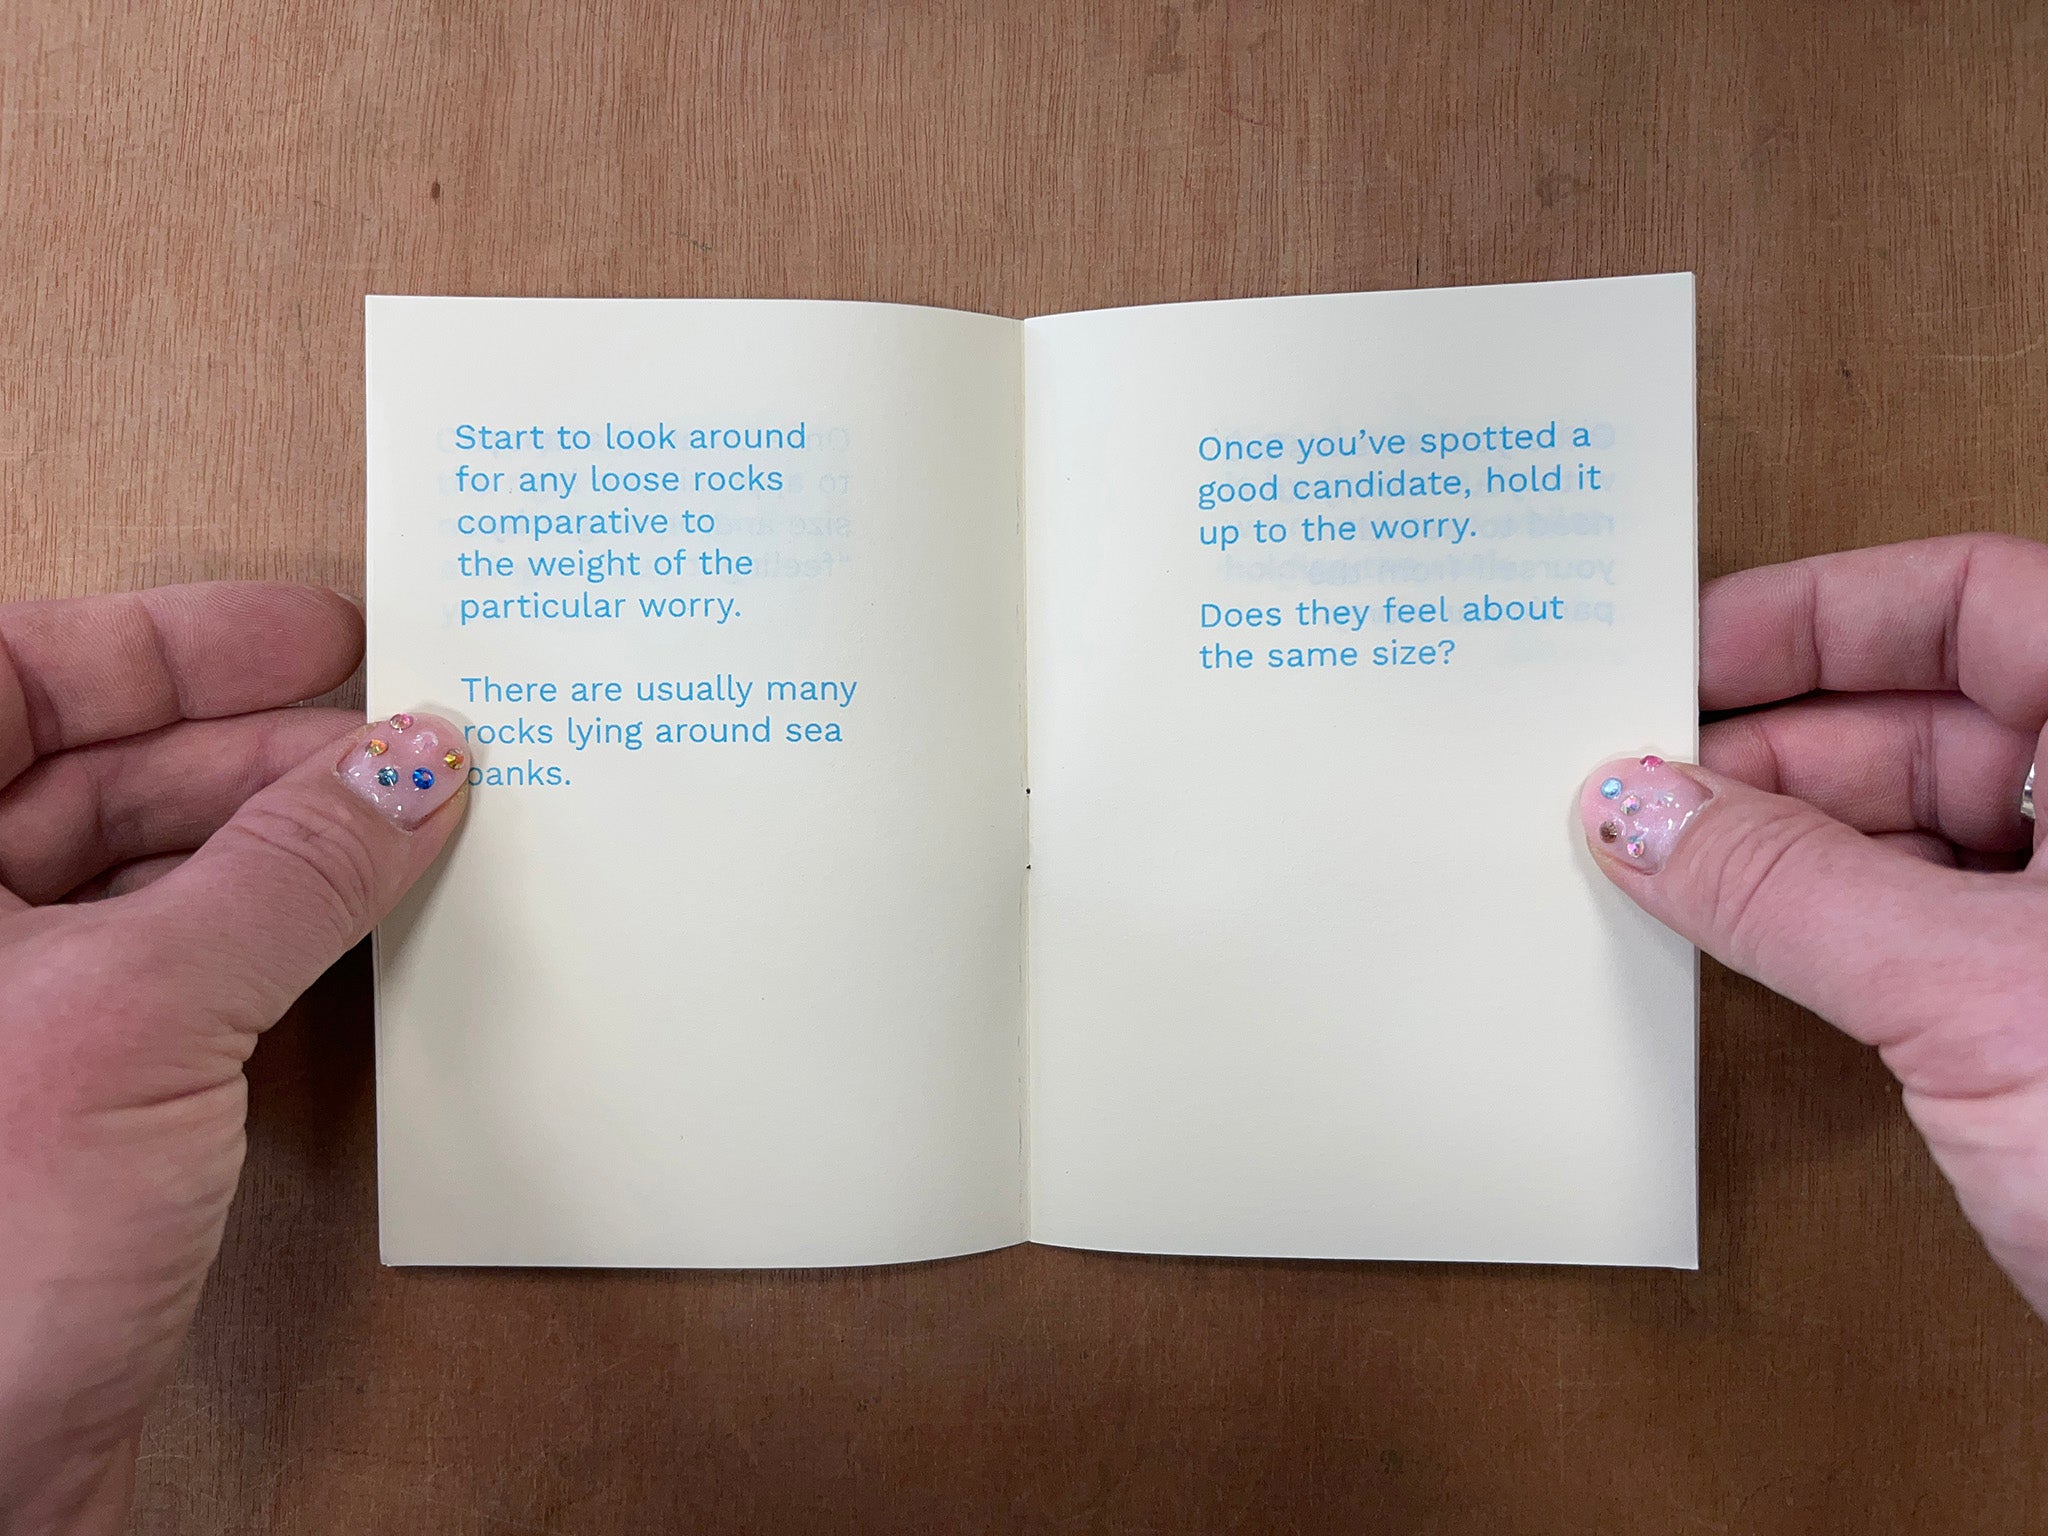 Start to look around
for any loose rocks
comparative to
the weight of the
particular worry.
There are usually many
rocks lying around sea
banks.
Once you’ve spotted a
good candidate, hold it
up to the worry.
Does they feel about
the same size?